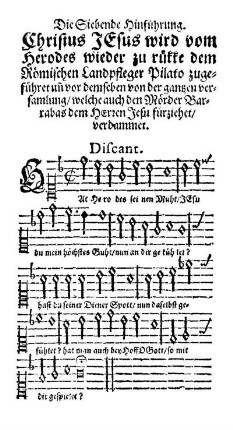 Die Siebende Hinführung.
Christus JEsus wird vom
Herodes wieder zu rükke dem
Römischen Landpfleger Pilato zuge-
führet uñ vor demselben von der gantzen ver-
samlung / welche auch den Mörder Bar-
rabas dem HErren Jesu fürziehet /
verdammet.
Discant.
HAt He ro des sei nen Muht / JEsu
du mein höchstes Guht / nun an dir ge küh let?
hast du seiner Diener Spott / nun daselbst ge-
fühlet? hat man auch bey Hoff O Gott / so mit
dir gespielet?